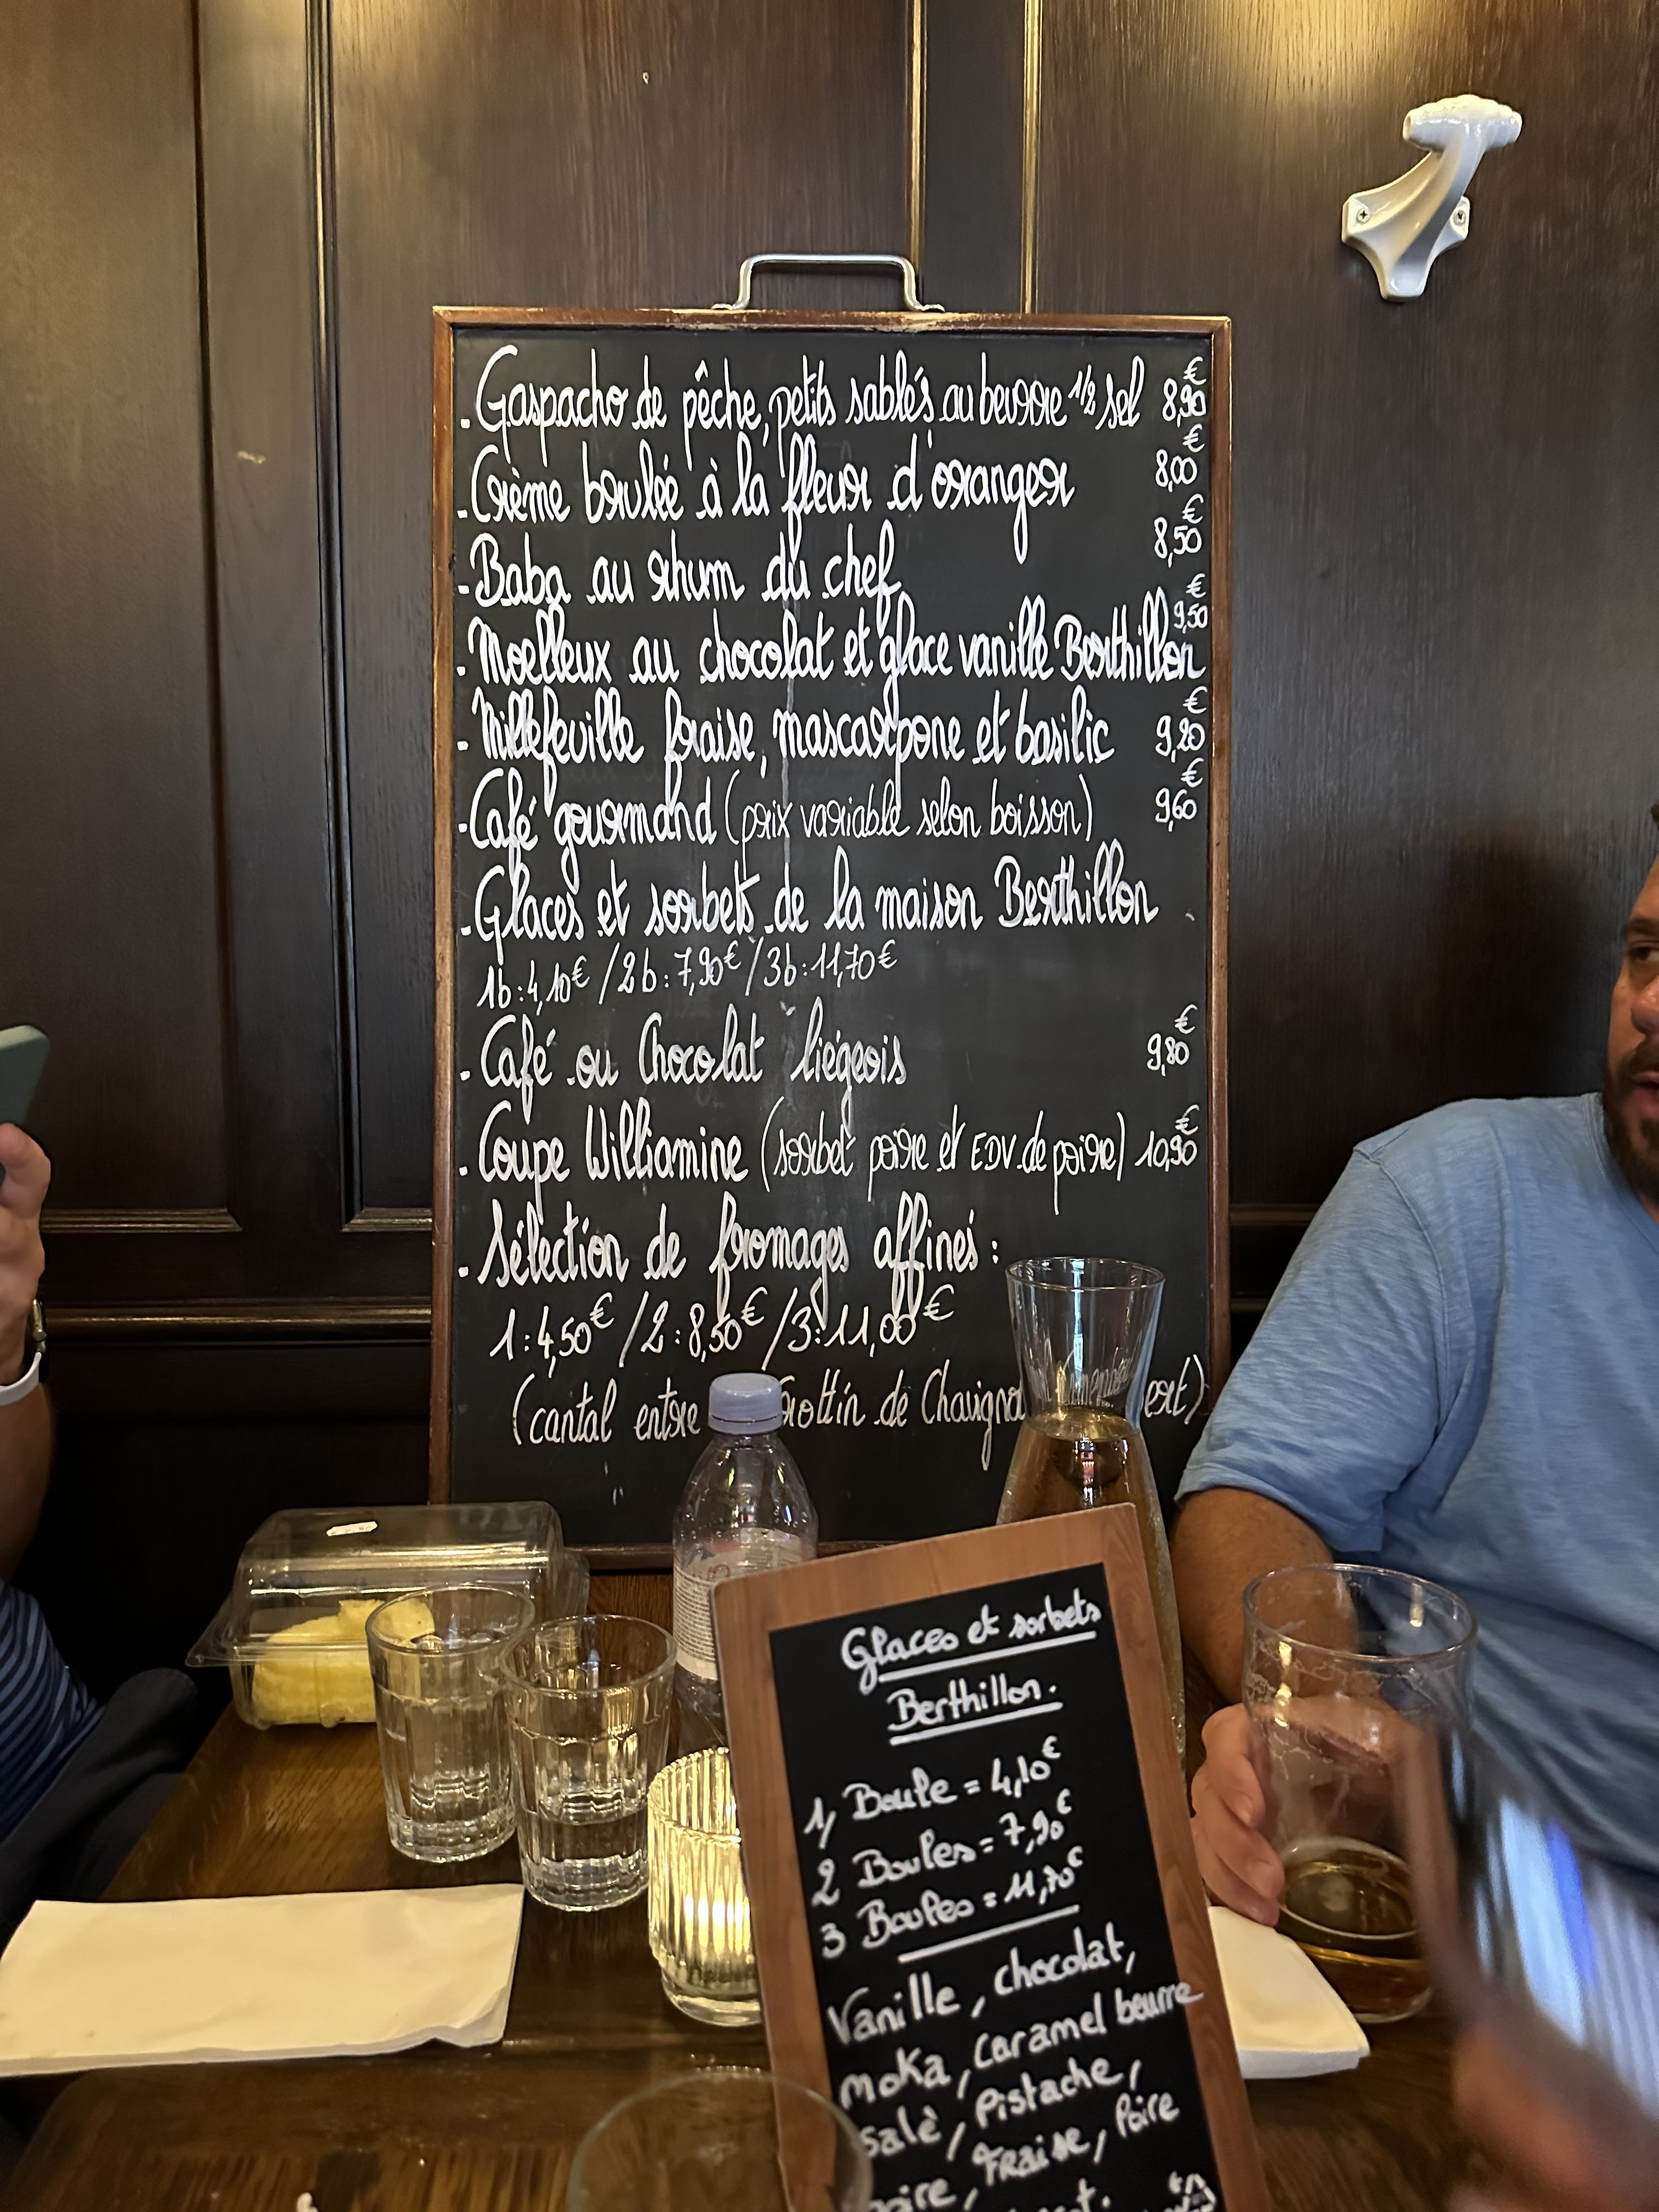 - Gaspacho de pêche, petits sablés au beurre 1/2 sel 8,90€
- Crème brulée à la fleur d'oranger 8,00€
- Baba au rhum du chef 8,50€
- Moelleux au chocolat et glace vanille Berthillon 9,50€
- Millefeuille fraise, mascarpone et basilic 9,20€
- Café gourmand (prix variable selon boisson) 9,60€
- Glaces et sorbets de la maison Berthillon
1b: 4,10€ / 2b: 7,90€ / 3b: 11,70€
- Café ou Chocolat liégeois 9,80€
- Coupe Williamine (sorbet poire et EDV de poire) 10,90€
- Sélection de fromages affinés :
1: 4,50€ / 2: 8,50€ / 3: 11,00€
(cantal entre Crottin de
Glaces et sorbets
Berthillon.
1 Boule = 4,10€
2 Boules = 7,90€
3 Boules = 11,70€
Vanille, chocolat,
moka, caramel beurre
salè, Pistache,
Fraise, Poire